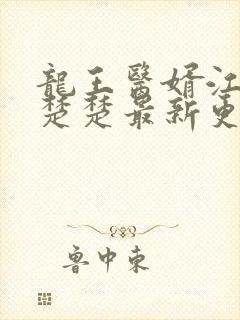 龍王醫婿江
楚楚最新更
魯中東